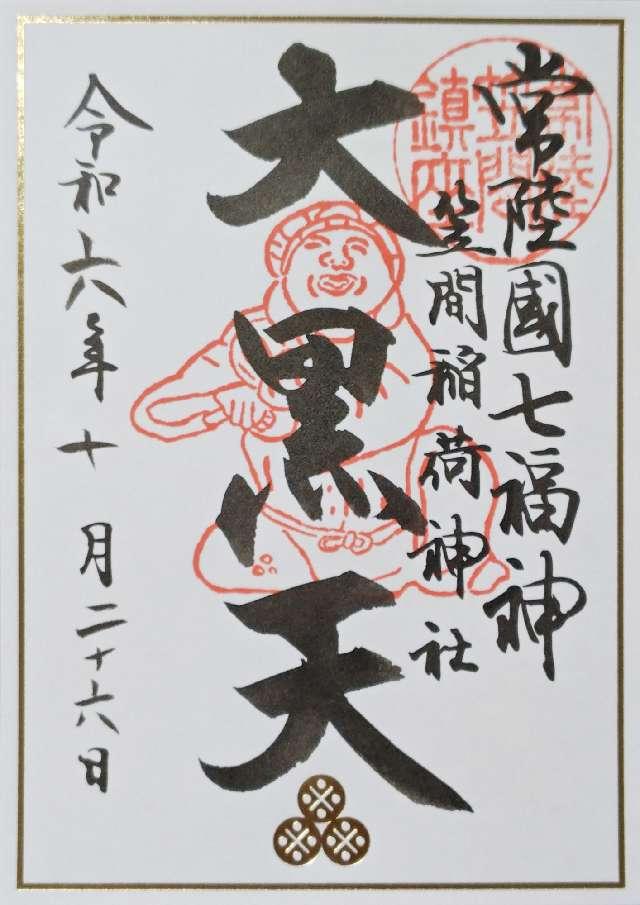 常陸國七福神
笠間稲荷神社
大黒天
令和六年十月二十六日